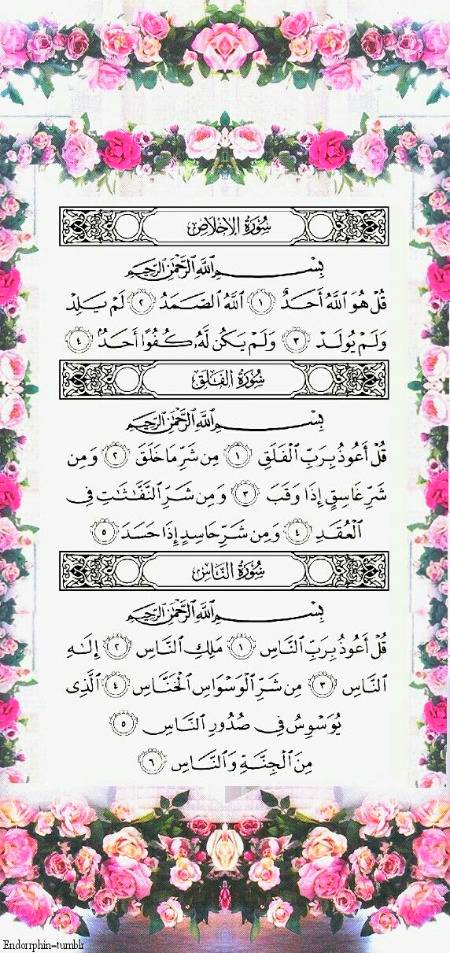 سُورَةُ الإِخْلَاصِ
بِسْمِ ٱللَّهِ ٱلرَّحْمَٰنِ ٱلرَّحِيمِ
قُلْ هُوَ ٱللَّهُ أَحَدٌ ١ ٱللَّهُ ٱلصَّمَدُ ٢ لَمْ يَلِدْ
وَلَمْ يُولَدْ ٣ وَلَمْ يَكُن لَّهُۥ كُفُوًا أَحَدٌۢ ٤
سُورَةُ الفَلَقِ
بِسْمِ ٱللَّهِ ٱلرَّحْمَٰنِ ٱلرَّحِيمِ
قُلْ أَعُوذُ بِرَبِّ ٱلْفَلَقِ ١ مِن شَرِّ مَا خَلَقَ ٢ وَمِن
شَرِّ غَاسِقٍ إِذَا وَقَبَ ٣ وَمِن شَرِّ ٱلنَّفَّٰثَٰتِ فِي
ٱلْعُقَدِ ٤ وَمِن شَرِّ حَاسِدٍ إِذَا حَسَدَ ٥
سُورَةُ النَّاسِ
بِسْمِ ٱللَّهِ ٱلرَّحْمَٰنِ ٱلرَّحِيمِ
قُلْ أَعُوذُ بِرَبِّ ٱلنَّاسِ ١ مَلِكِ ٱلنَّاسِ ٢ إِلَٰهِ
ٱلنَّاسِ ٣ مِن شَرِّ ٱلْوَسْوَاسِ ٱلْخَنَّاسِ ٤ ٱلَّذِى
يُوَسْوِسُ فِى صُدُورِ ٱلنَّاسِ ٥
مِنَ ٱلْجِنَّةِ وَٱلنَّاسِ ٦
Endorrphin-tumblr